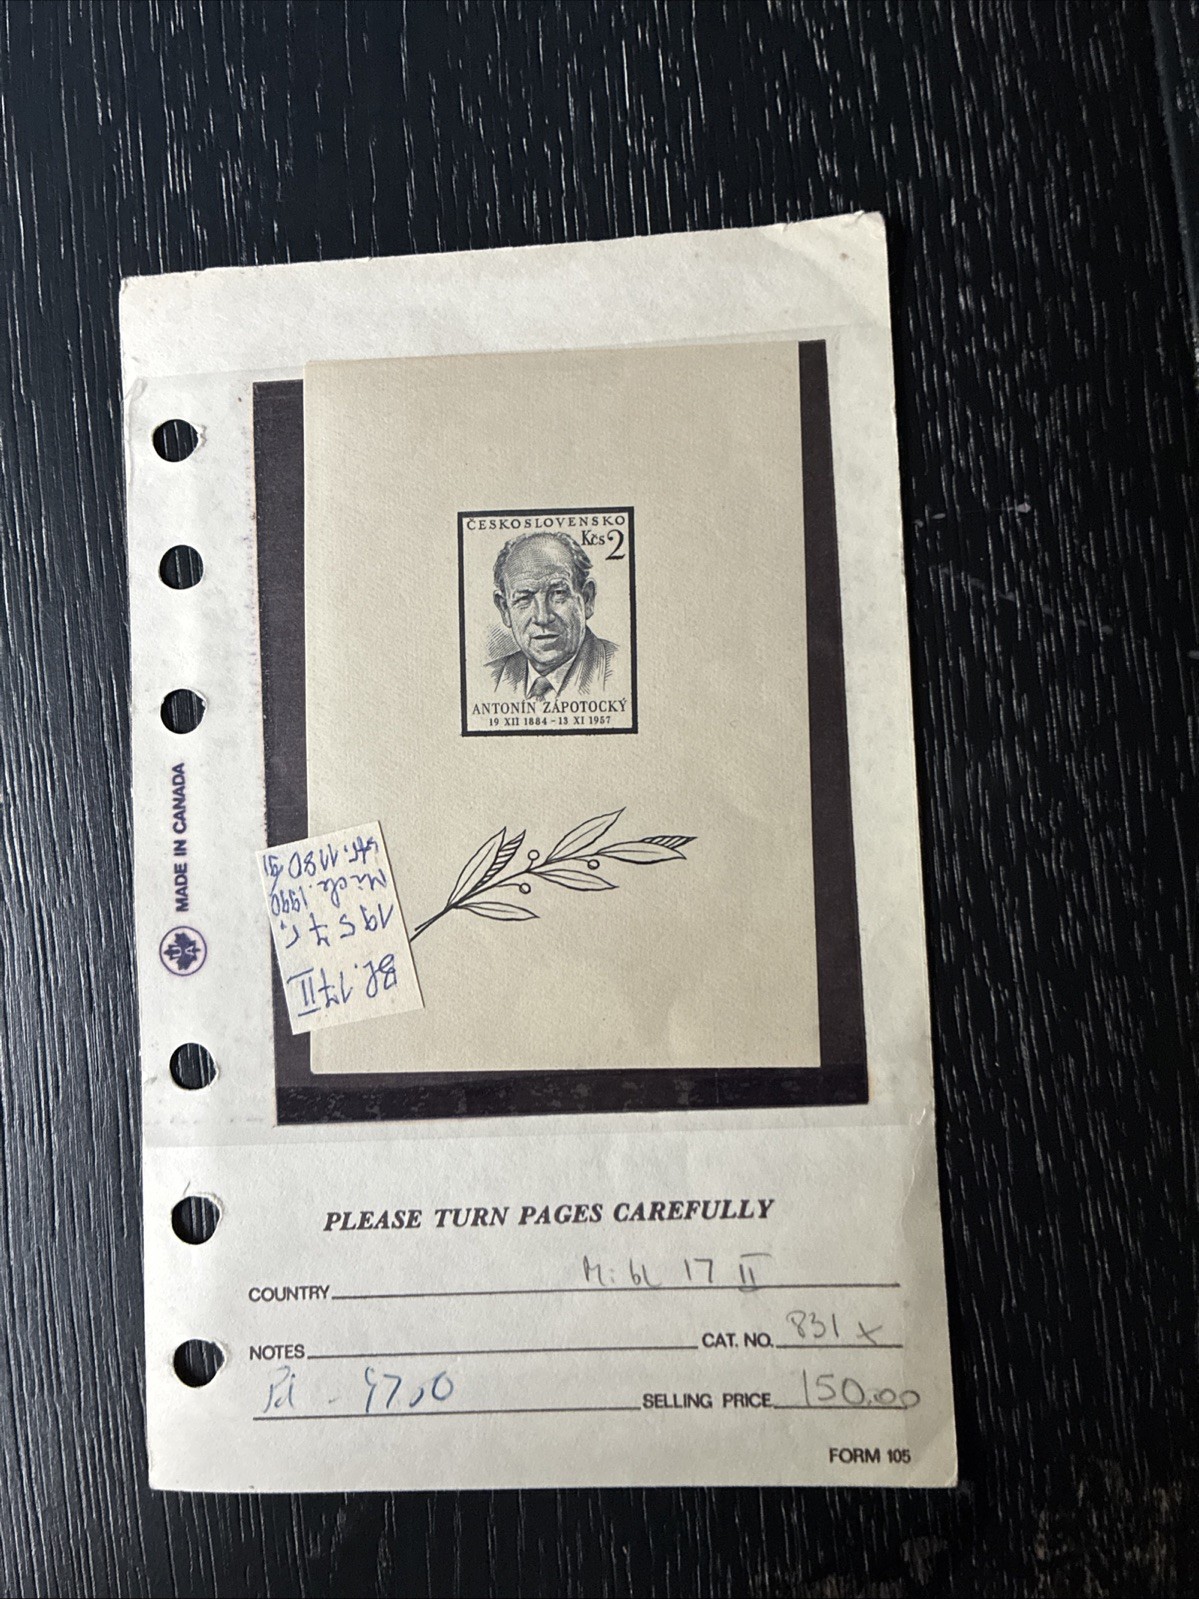 ČESKOSLOVENSKO
Kčs 2
ANTONÍN ZÁPOTOCKÝ
19 XII 1884 - 13 XI 1957
Bl. 17 II
1957 r.
Mich. 1990/91
str. 1180
MADE IN CANADA
PLEASE TURN PAGES CAREFULLY
COUNTRY Mi bl 17 II
NOTES
CAT. NO. 831 x
Pd -
SELLING PRICE 150.00
FORM 105